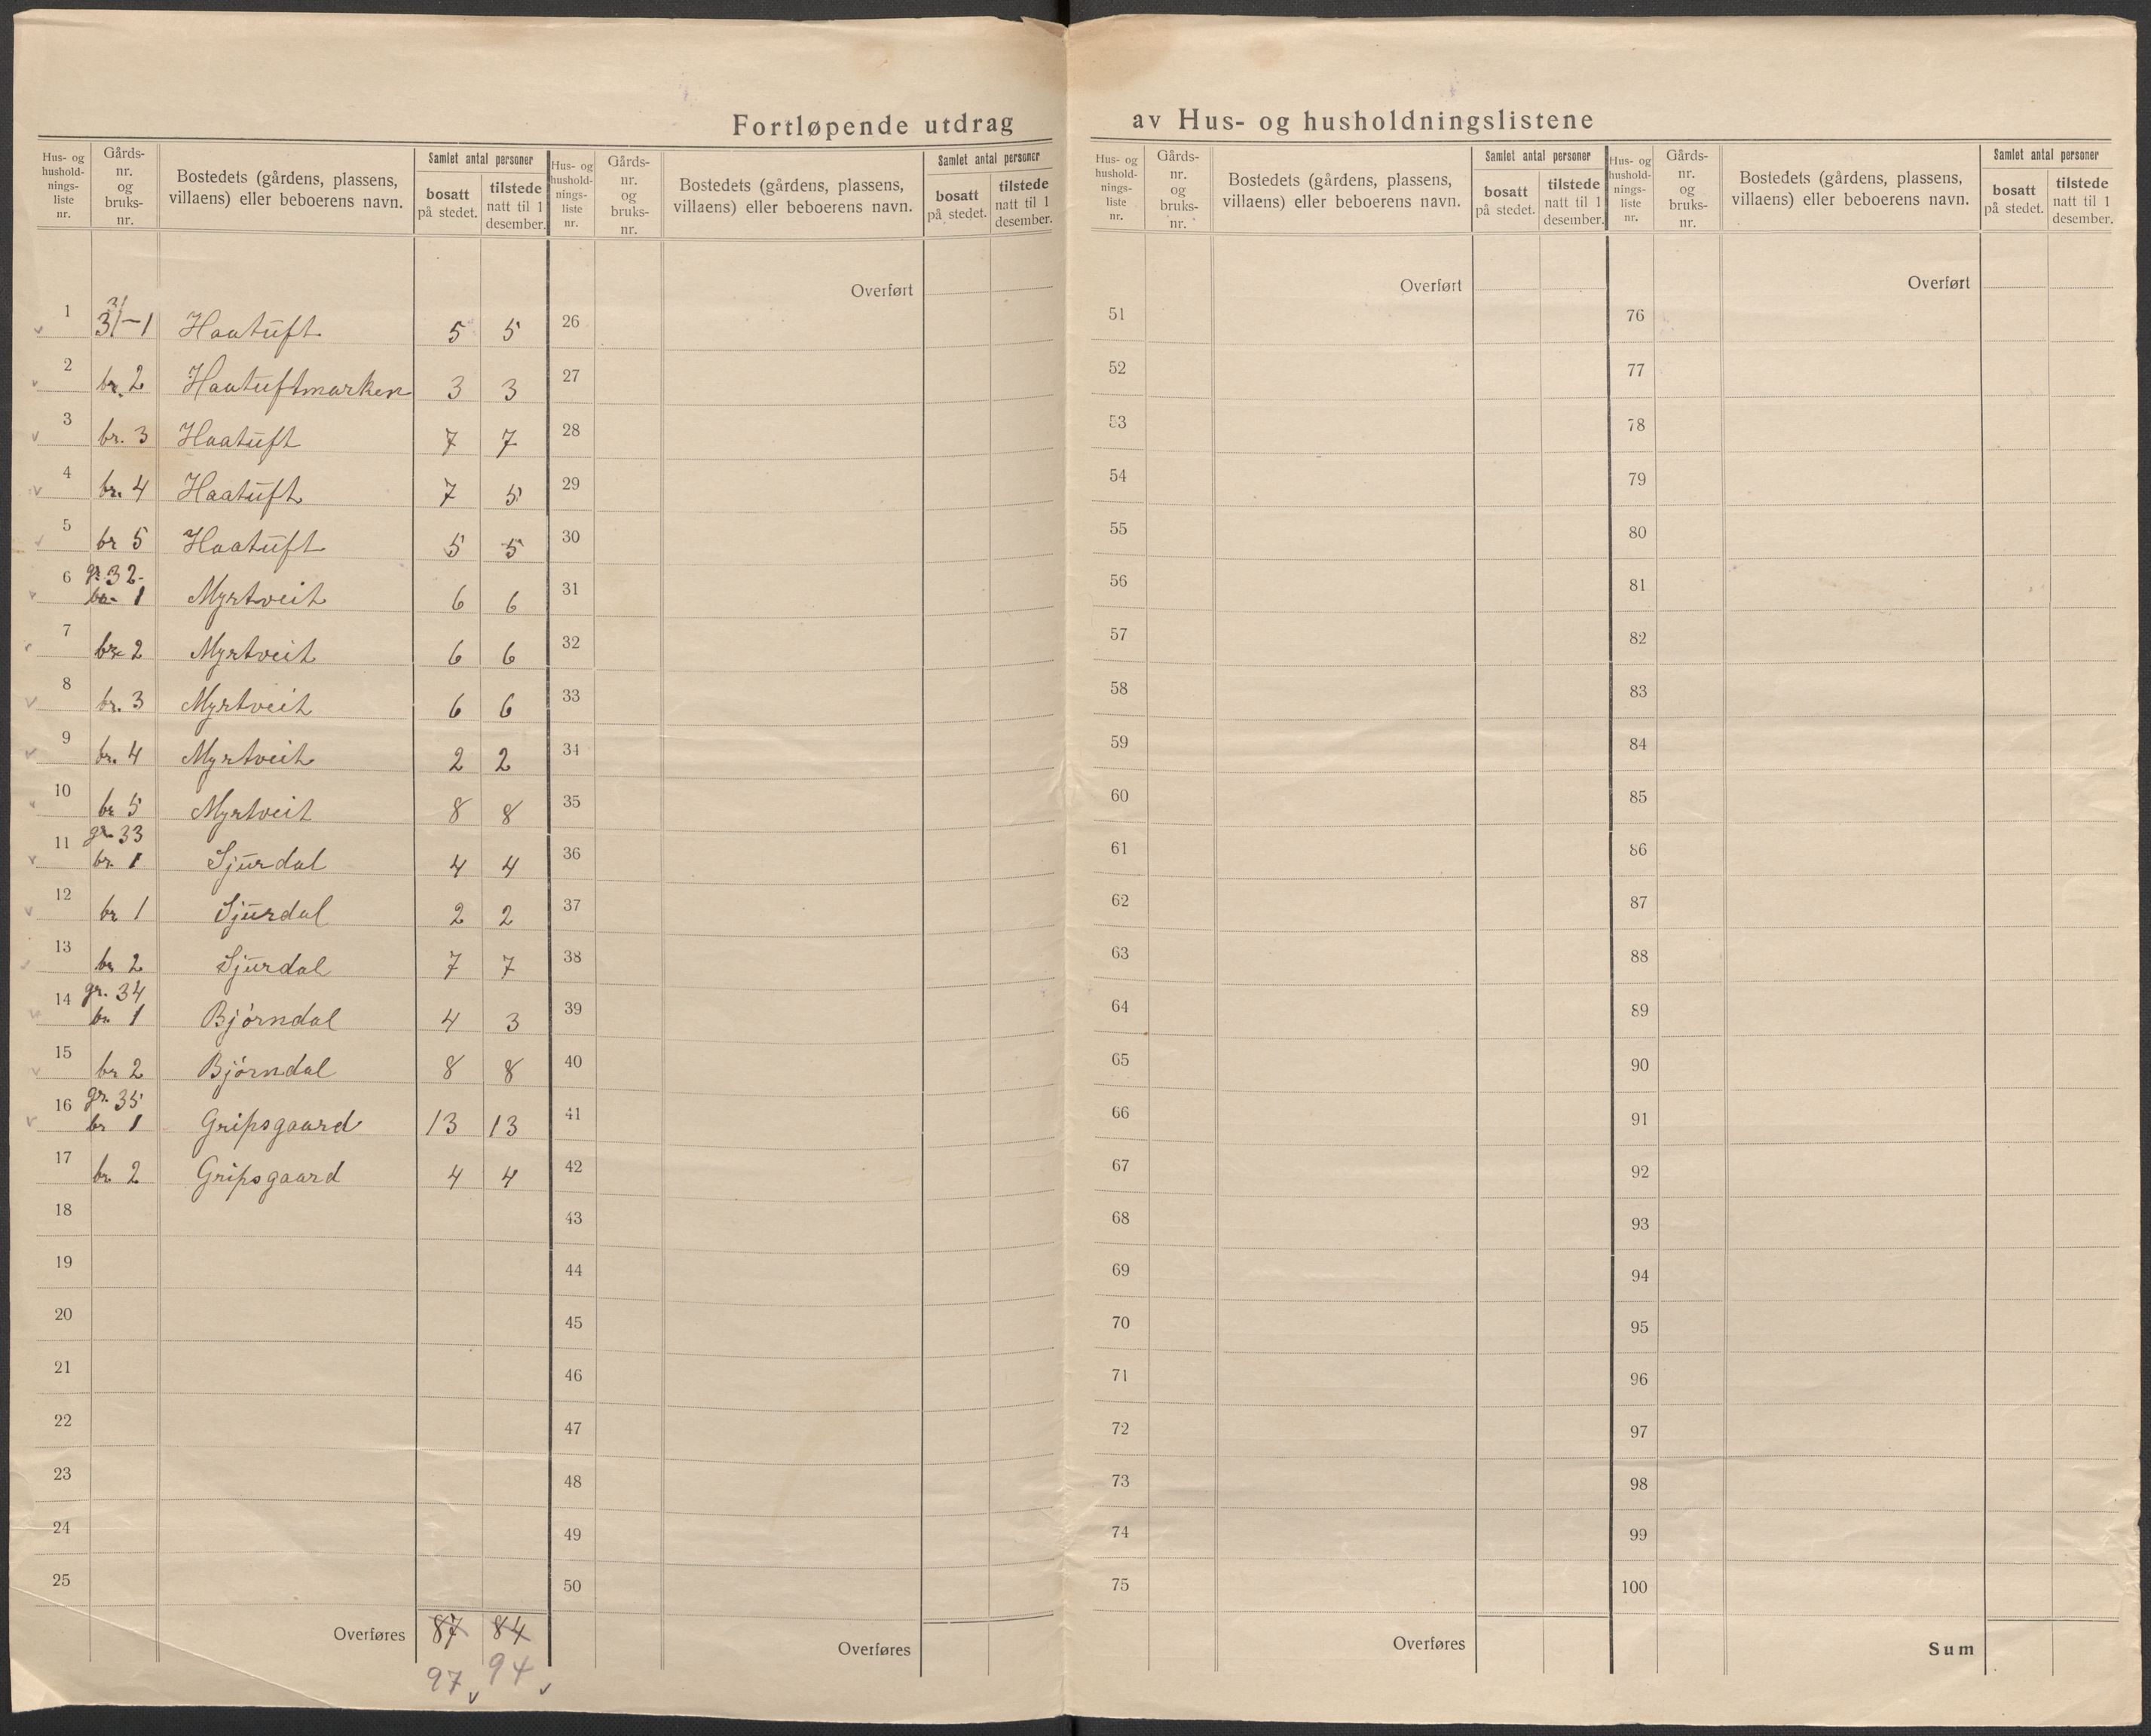 Fortløpende utdrag av Hus- og husholdningslistene
Hus- og hushold-nings-liste nr. Gårds-nr. og bruks-nr. Bostedets (gårdens, plassens, villaens) eller beboerens navn. Samlet antal personer bosatt på stedet. tilstede natt til 1 desember.
1 31-1 Haatuft 5 5
2 br. 2 Haatuftmarken 3 3
3 br. 3 Haatuft 7 7
4 br. 4 Haatuft 7 5
5 br 5 Haatuft 5 5
6 gr. 32-
br 1 Myrtveit 6 6
7 br 2 Myrtveit 6 6
8 br. 3 Myrtveit 6 6
9 br. 4 Myrtveit 2 2
10 br 5 Myrtveit 8 8
11 gr 33
br. 1 Sjurdal 4 4
12 br 1 Sjurdal 2 2
13 br 2 Sjurdal 7 7
14 gr. 34
br. 1 Bjørndal 4 3
15 br 2 Bjørndal 8 8
16 gr. 35
br 1 Gripsgaard 13 13
17 br 2 Gripsgaard 4 4
18
19
20
21
22
23
24
25
Overføres 87 84
97 94
Hus- og hushold-nings-liste nr. Gårds-nr. og bruks-nr. Bostedets (gårdens, plassens, villaens) eller beboerens navn. Samlet antal personer bosatt på stedet. tilstede natt til 1 desember.
Overført
26
27
28
29
30
31
32
33
34
35
36
37
38
39
40
41
42
43
44
45
46
47
48
49
50
Overføres
Hus- og hushold-nings-liste nr. Gårds-nr. og bruks-nr. Bostedets (gårdens, plassens, villaens) eller beboerens navn. Samlet antal personer bosatt på stedet. tilstede natt til 1 desember.
Overført
51
52
53
54
55
56
57
58
59
60
61
62
63
64
65
66
67
68
69
70
71
72
73
74
75
Overføres
Hus- og hushold-nings-liste nr. Gårds-nr. og bruks-nr. Bostedets (gårdens, plassens, villaens) eller beboerens navn. Samlet antal personer bosatt på stedet. tilstede natt til 1 desember.
Overført
76
77
78
79
80
81
82
83
84
85
86
87
88
89
90
91
92
93
94
95
96
97
98
99
100
Sum